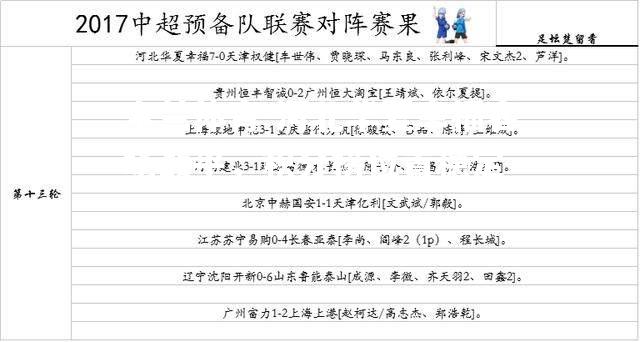 2017中超预备队联赛对阵赛果
足坛楚留香
河北华夏幸福7-0天津权健[车世伟、贾晓琛、马东良、张利峰、宋文杰2、芦洋]。
贵州恒丰智诚0-2广州恒大淘宝[王靖斌、依尔夏提]。
上海绿地申花3-1重庆当代力帆
建业3-1
第十三轮
北京中赫国安1-1天津亿利[文武斌/郭毅]。
江苏苏宁易购0-4长春亚泰[李尚、阎峰2（1p）、程长城]。
辽宁沈阳开新0-6山东鲁能泰山[成源、李微、齐天羽2、田鑫2]。
广州富力1-2上海上港[赵柯达/高志杰、郑浩乾]。